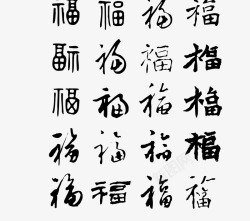 福 福 福 福
福 福 福 福
福 福 福 福
福 福 福 福
福 福 福 福